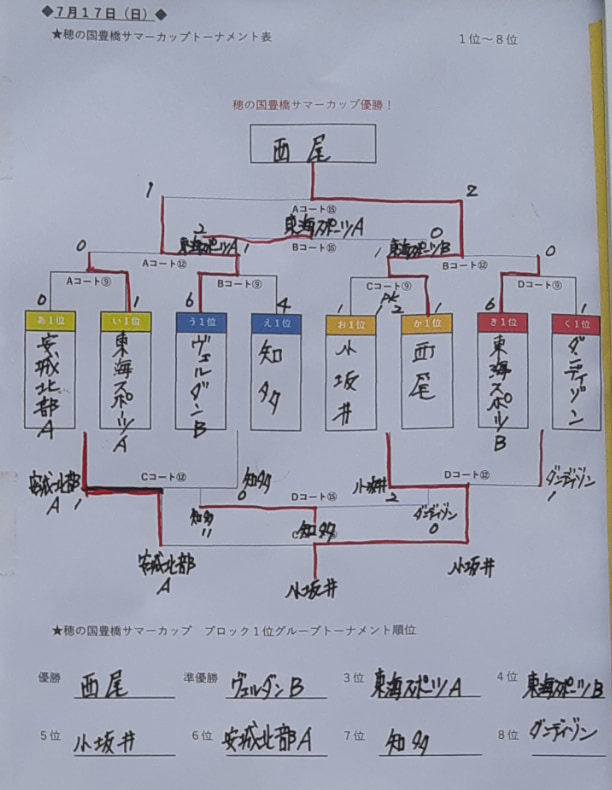 ◆7月17日（日）◆
★穂の国豊橋サマーカップトーナメント表 1位～8位
穂の国豊橋サマーカップ優勝！
西尾
1 2
Aコート⑮
2 東海スポーツA 0
東海スポーツA 1 Bコート⑮ 1 東海スポーツB
0 Aコート⑫ Bコート⑫ 0
Aコート⑨ Bコート⑨ Cコート⑨ Dコート⑨
0 1 6 4 1 1 PK 2 1 6 1
あ1位 い1位 う1位 え1位 お1位 か1位 き1位 く1位
安城北部A 東海スポーツA ヴェルダンB 知多 小坂井 西尾 東海スポーツB ダンディゾン
安城北部A 1 Cコート⑫ 0 知多 小坂井 2 Dコート⑫ ダンディゾン 1
知多 11 Dコート⑮ ダンディゾン 0
知多
安城北部A 小坂井 小坂井
★穂の国豊橋サマーカップ ブロック1位グループトーナメント順位
優勝 西尾 準優勝 ヴェルダンB 3位 東海スポーツA 4位 東海スポーツB
5位 小坂井 6位 安城北部A 7位 知多 8位 ダンディゾン